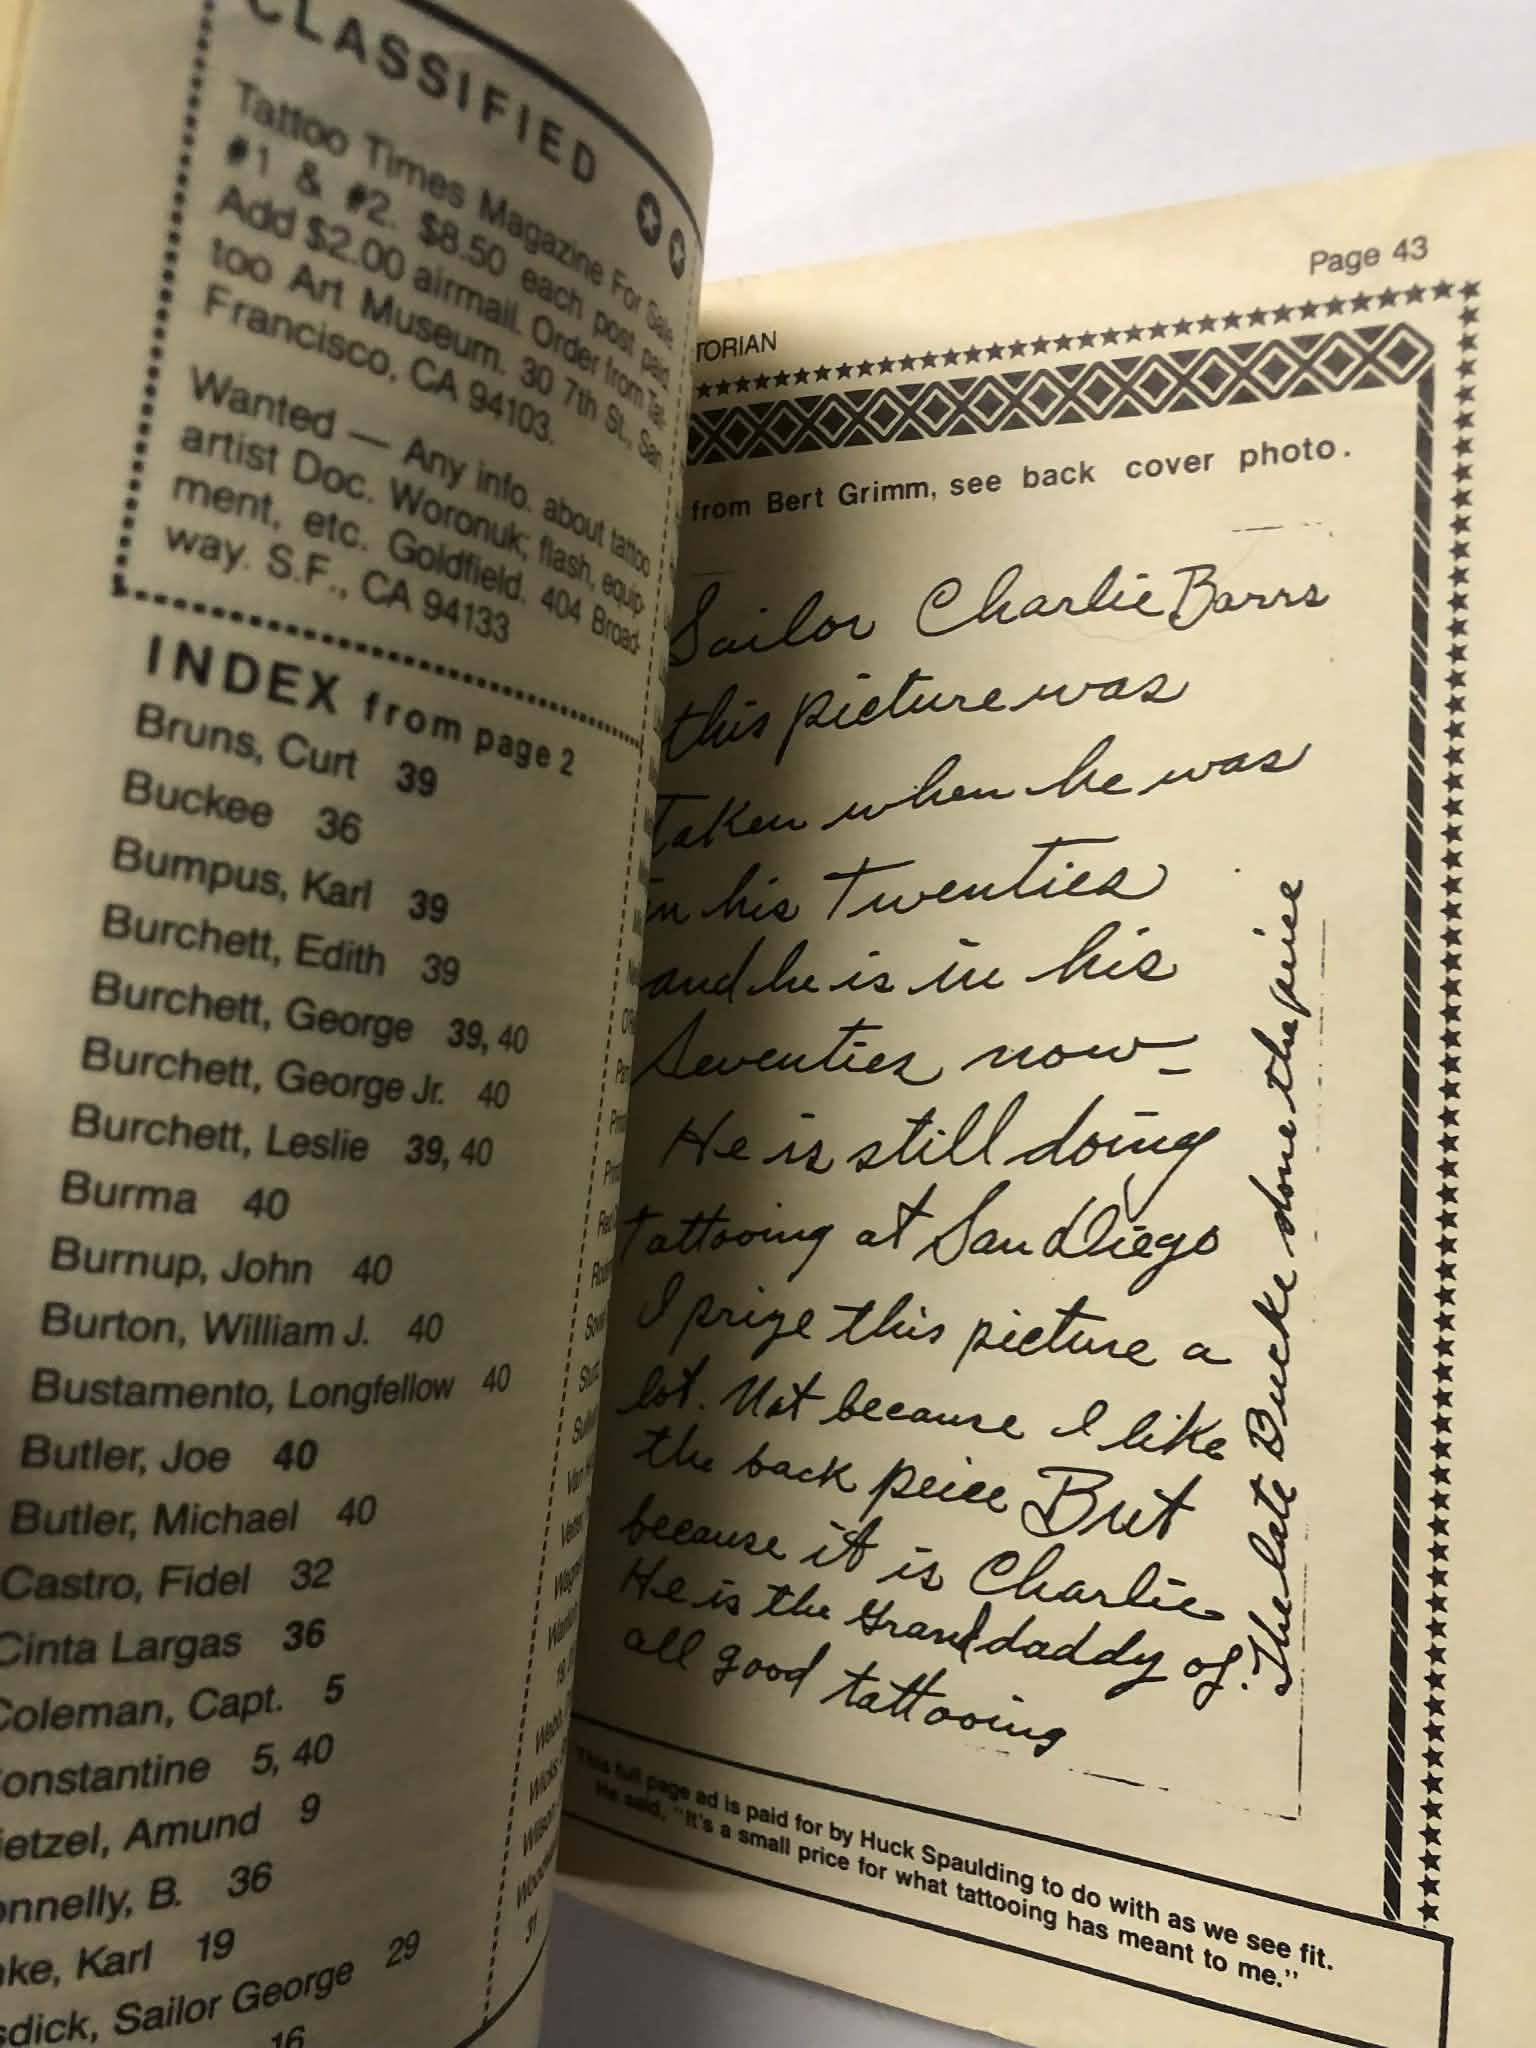 CLASSIFIED
Tattoo Times Magazine For Sale
#1 & #2. $8.50 each post paid
Add $2.00 airmail. Order from Tat-
too Art Museum. 30 7th St., San
Francisco, CA 94103.
Wanted — Any info. about tattoo
artist Doc. Woronuk; flash, equip-
ment, etc. Goldfield. 404 Broad-
way. S.F., CA 94133
INDEX from page 2
Bruns, Curt 39
Buckee 36
Bumpus, Karl 39
Burchett, Edith 39
Burchett, George 39, 40
Burchett, George Jr. 40
Burchett, Leslie 39, 40
Burma 40
Burnup, John 40
Burton, William J. 40
Bustamento, Longfellow 40
Butler, Joe 40
Butler, Michael 40
Castro, Fidel 32
Cinta Largas 36
Coleman, Capt. 5
onstantine 5, 40
ietzel, Amund 9
onnelly, B. 36
ke, Karl 19
sdick, Sailor George 29
16
31
TORIAN
Page 43
from Bert Grimm, see back cover photo.
Sailor Charlie Barrs
this picture was
taken when he was
in his Twenties
and he is in his
Seventies now-
He is still doing
tattooing at San Diego
I prize this picture a
lot. Not because I like
the back peice But
because it is Charlie
He is the Granddaddy of
all good tattooing
The late Bucke done the peice
This full page ad is paid for by Huck Spaulding to do with as we see fit.
He said, "It's a small price for what tattooing has meant to me."